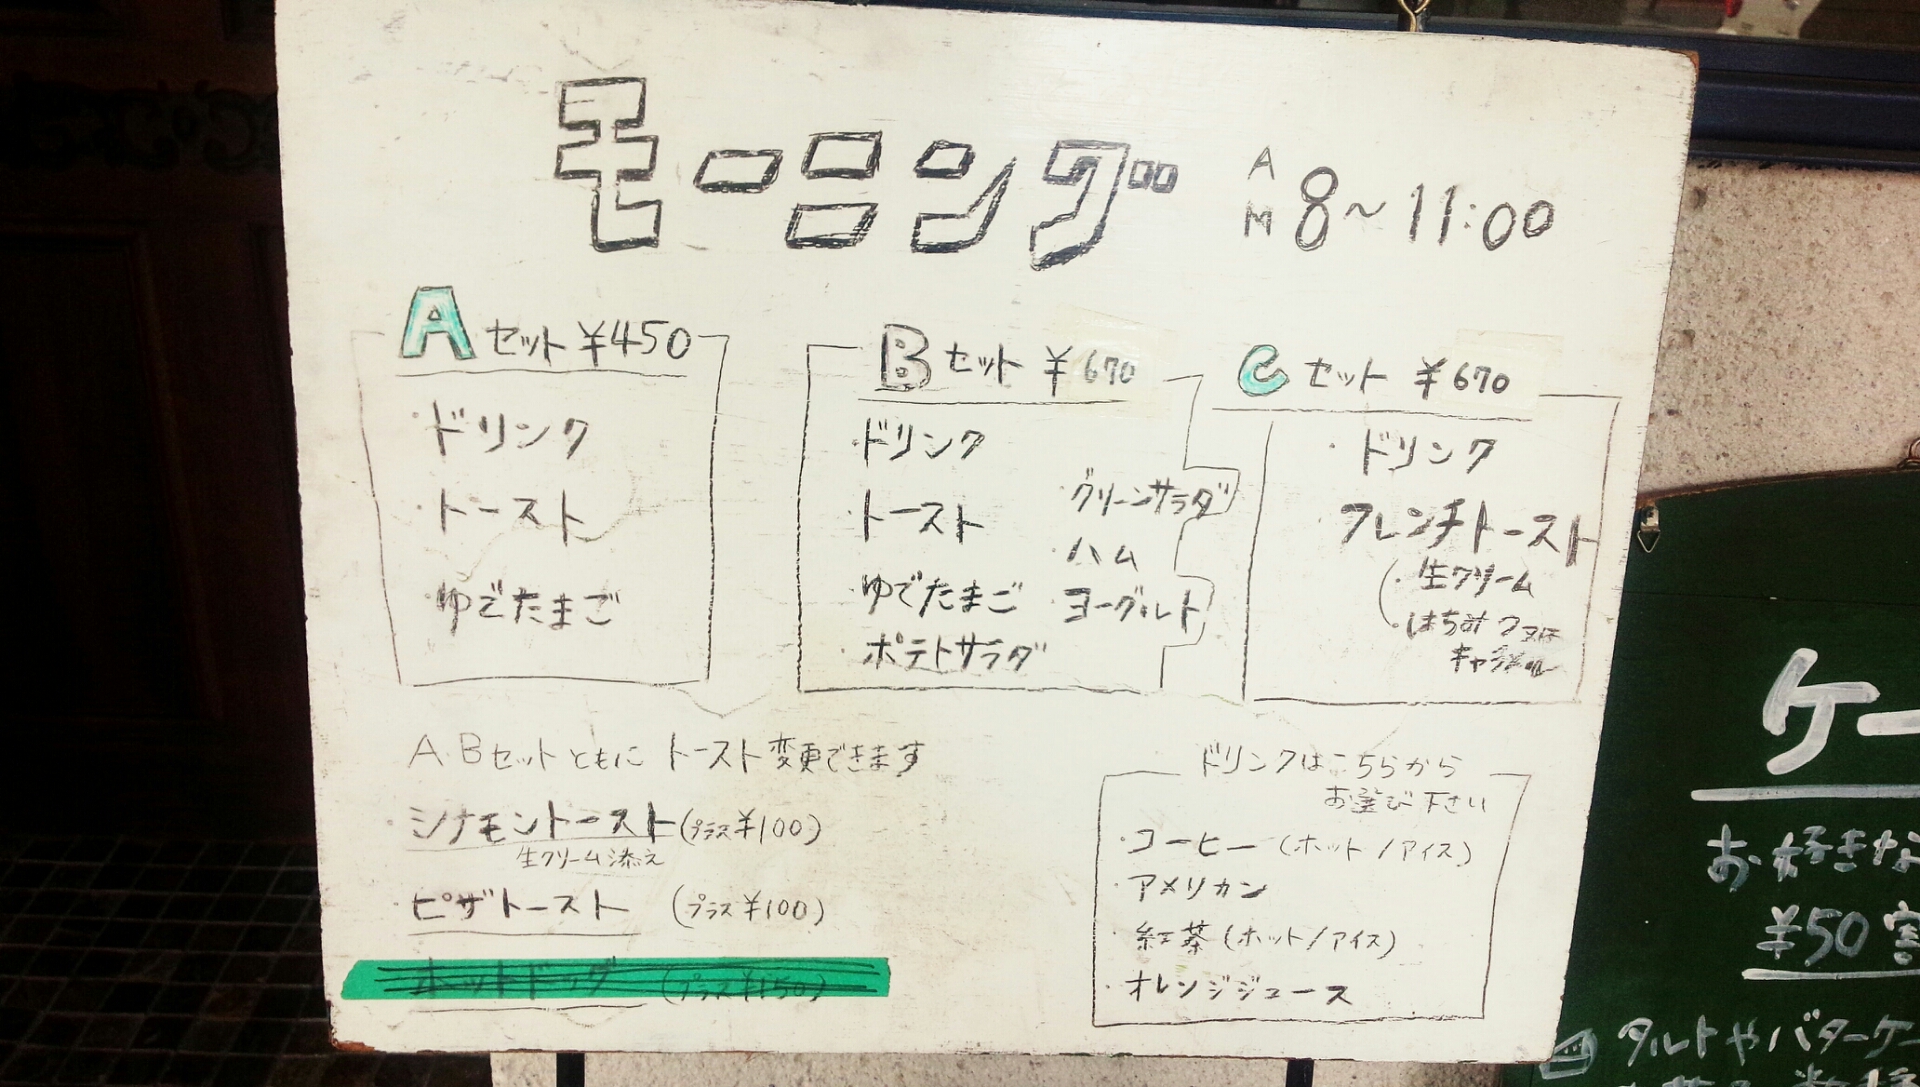 モーニング AM 8～11:00
Aセット ¥450
・ドリンク
・トースト
・ゆでたまご
Bセット ¥670
・ドリンク
・トースト
・ゆでたまご
・ポテトサラダ
・グリーンサラダ
・ハム
・ヨーグルト
Cセット ¥670
・ドリンク
・フレンチトースト
(・生クリーム
・はちみつ又は
キャラメル
A.Bセットともにトースト変更できます
・シナモントースト(プラス¥100)
生クリーム添え
・ピザトースト (プラス¥100)
ホットドッグ (プラス¥150)
ドリンクはこちらから
お選び下さい
・コーヒー (ホット/アイス)
・アメリカン
・紅茶 (ホット/アイス)
・オレンジジュース
ケー
お好きな
¥50
タルトやバターケー